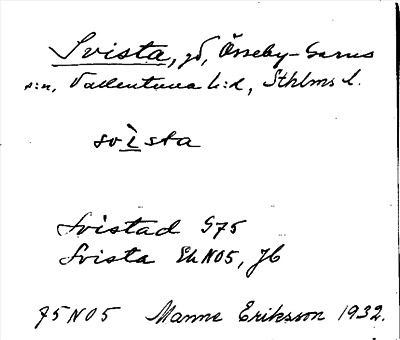 Svista, gd, Össeby-Garns
s:n, Vallentuna h:d, Sthlms l.
svìsta
Svistad G75
Svista Ek N05, Jb
75N05 Manne Eriksson 1932.